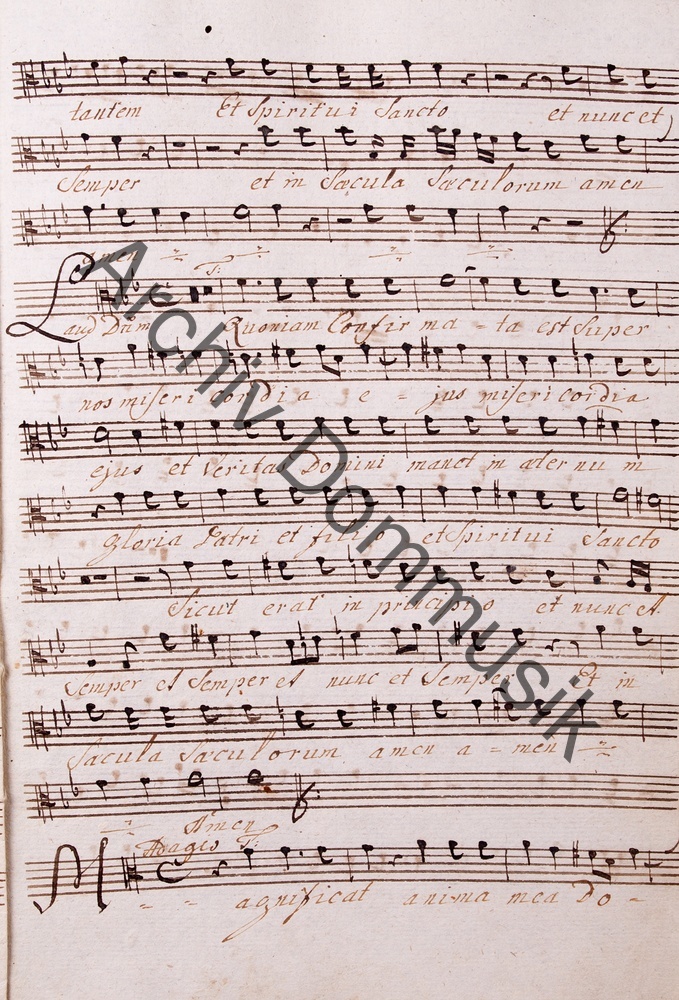 tantem Et Spiritui Sancto et nunc et
Semper et in Sæcula Sæculorum amen
Amen
T:
Laud Dum Quoniam Confirma - ta est Super
nos misericordia e - jus misericordia
ejus et Veritas Domini manet in æternum
gloria Patri et filio et Spiritui Sancto
Sicut erat in principio et nunc et
Semper et Semper et nunc et Semper Et in
Sæcula Sæculorum amen a - men
Amen
Adagio T:
Magnificat anima mea Do -
Archiv Dommusik